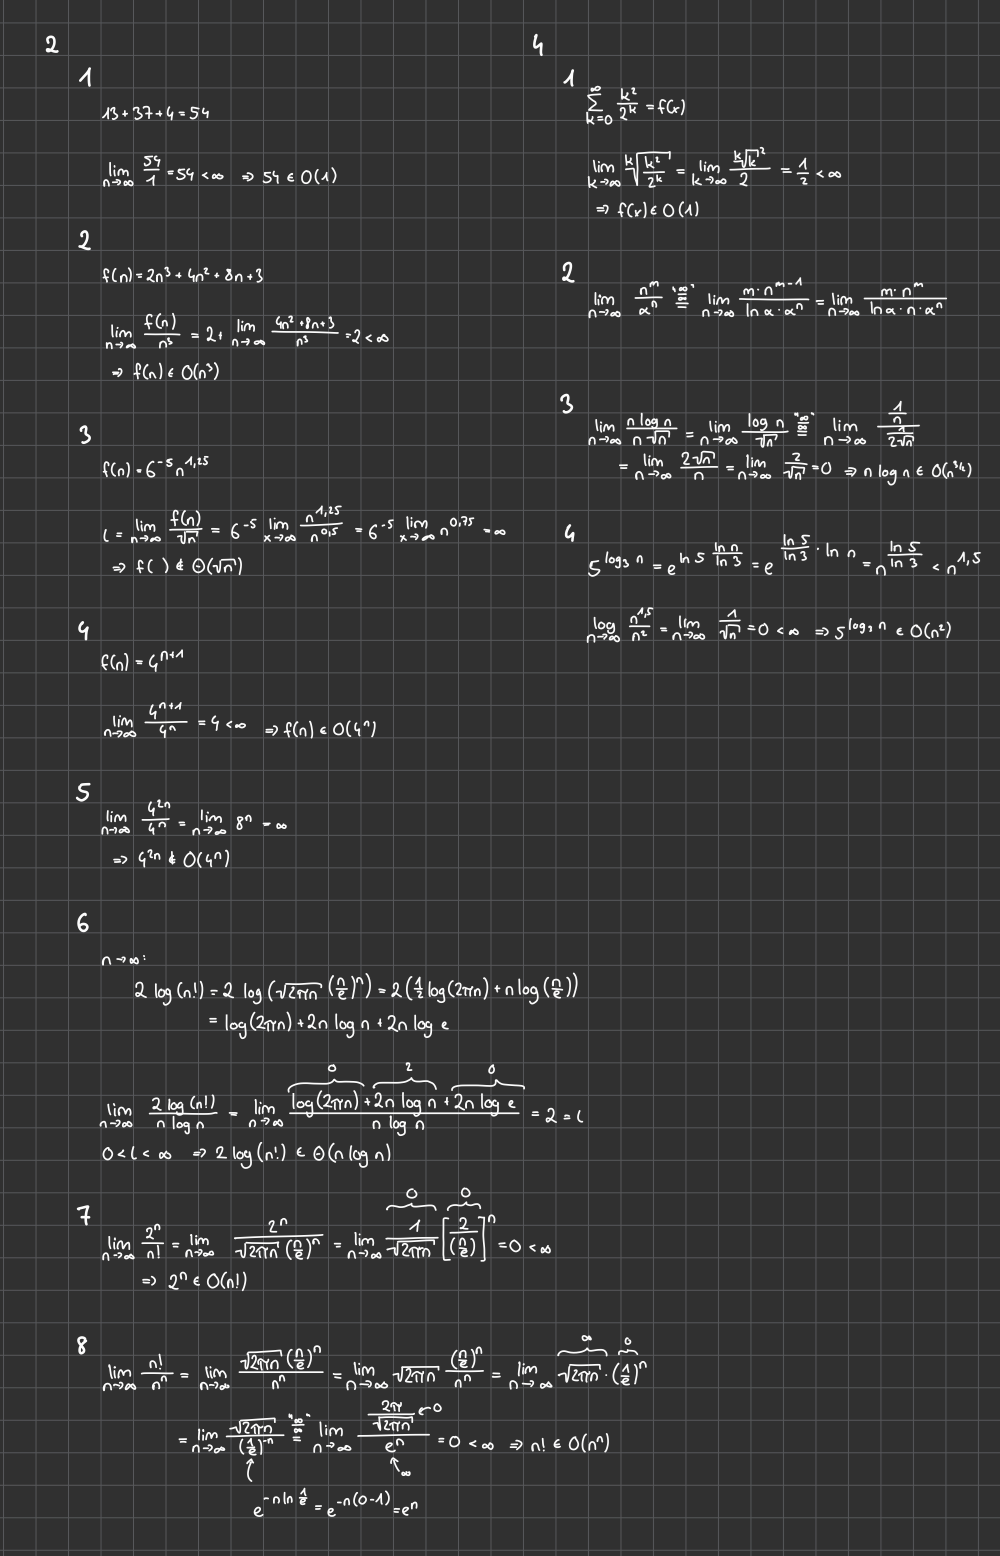 2
1
13 + 37 + 4 = 54
lim n→∞ 54/1 = 54 < ∞ ⇒ 54 ∈ O(1)
2
f(n) = 2n³ + 4n² + 8n + 3
lim n→∞ f(n)/n³ = 2 + lim n→∞ (4n² + 8n + 3)/n³ = 2 < ∞
⇒ f(n) ∈ O(n³)
3
f(n) = 6^-5 n^1,25
l = lim n→∞ f(n)/√n = 6^-5 lim x→∞ n^1,25/n^0,5 = 6^-5 lim x→∞ n^0,75 = ∞
⇒ f( ) ∉ Θ(√n)
4
f(n) = 4^(n+1)
lim n→∞ 4^(n+1)/4^n = 4 < ∞ ⇒ f(n) ∈ O(4^n)
5
lim n→∞ 4^2n/4^n = lim n→∞ 8^n = ∞
⇒ 4^2n ∉ O(4^n)
6
n→∞:
2 log(n!) = 2 log(√2πn (n/e)^n) = 2(1/2 log(2πn) + n log(n/e))
= log(2πn) + 2n log n + 2n log e
0 2 0
lim n→∞ 2 log(n!)/(n log n) = lim n→∞ (log(2πn) + 2n log n + 2n log e)/(n log n) = 2 = l
0 < l < ∞ ⇒ 2 log(n!) ∈ Θ(n log n)
7
0 0
lim n→∞ 2^n/n! = lim n→∞ 2^n/(√2πn (n/e)^n) = lim n→∞ 1/√2πn [2/(n/e)]^n = 0 < ∞
⇒ 2^n ∈ O(n!)
8
∞ 0
lim n→∞ n!/n^n = lim n→∞ √2πn (n/e)^n/n^n = lim n→∞ √2πn (n/e)^n/n^n = lim n→∞ √2πn · (1/e)^n
= lim n→∞ √2πn/(1/e)^-n "∞/∞" = lim n→∞ (2π/√2πn)/e^n = 0 < ∞ ⇒ n! ∈ O(n^n)
0
∞
e^(-n ln 1/e) = e^(-n(0-1)) = e^n
4
1
∑ k=0 ∞ k²/2^k = f(x)
lim k→∞ k√(k²/2^k) = lim k→∞ k√k²/2 = 1/2 < ∞
⇒ f(x) ∈ O(1)
2
lim n→∞ n^m/α^n "∞/∞" = lim n→∞ (m·n^(m-1))/(ln α·α^n) = lim n→∞ (m·n^m)/(ln α·n·α^n)
3
lim n→∞ (n log n)/(n √n) = lim n→∞ log n/√n "∞/∞" = lim n→∞ (1/n)/(1/2√n)
= lim n→∞ 2√n/n = lim n→∞ 2/√n = 0 ⇒ n log n ∈ O(n^3/2)
4
5^(log₃ n) = e^(ln 5 ln n/ln 3) = e^(ln 5/ln 3 · ln n) = n^(ln 5/ln 3) < n^1,5
log n→∞ n^1,5/n² = lim n→∞ 1/√n = 0 < ∞ ⇒ 5^(log₃ n) ∈ O(n²)